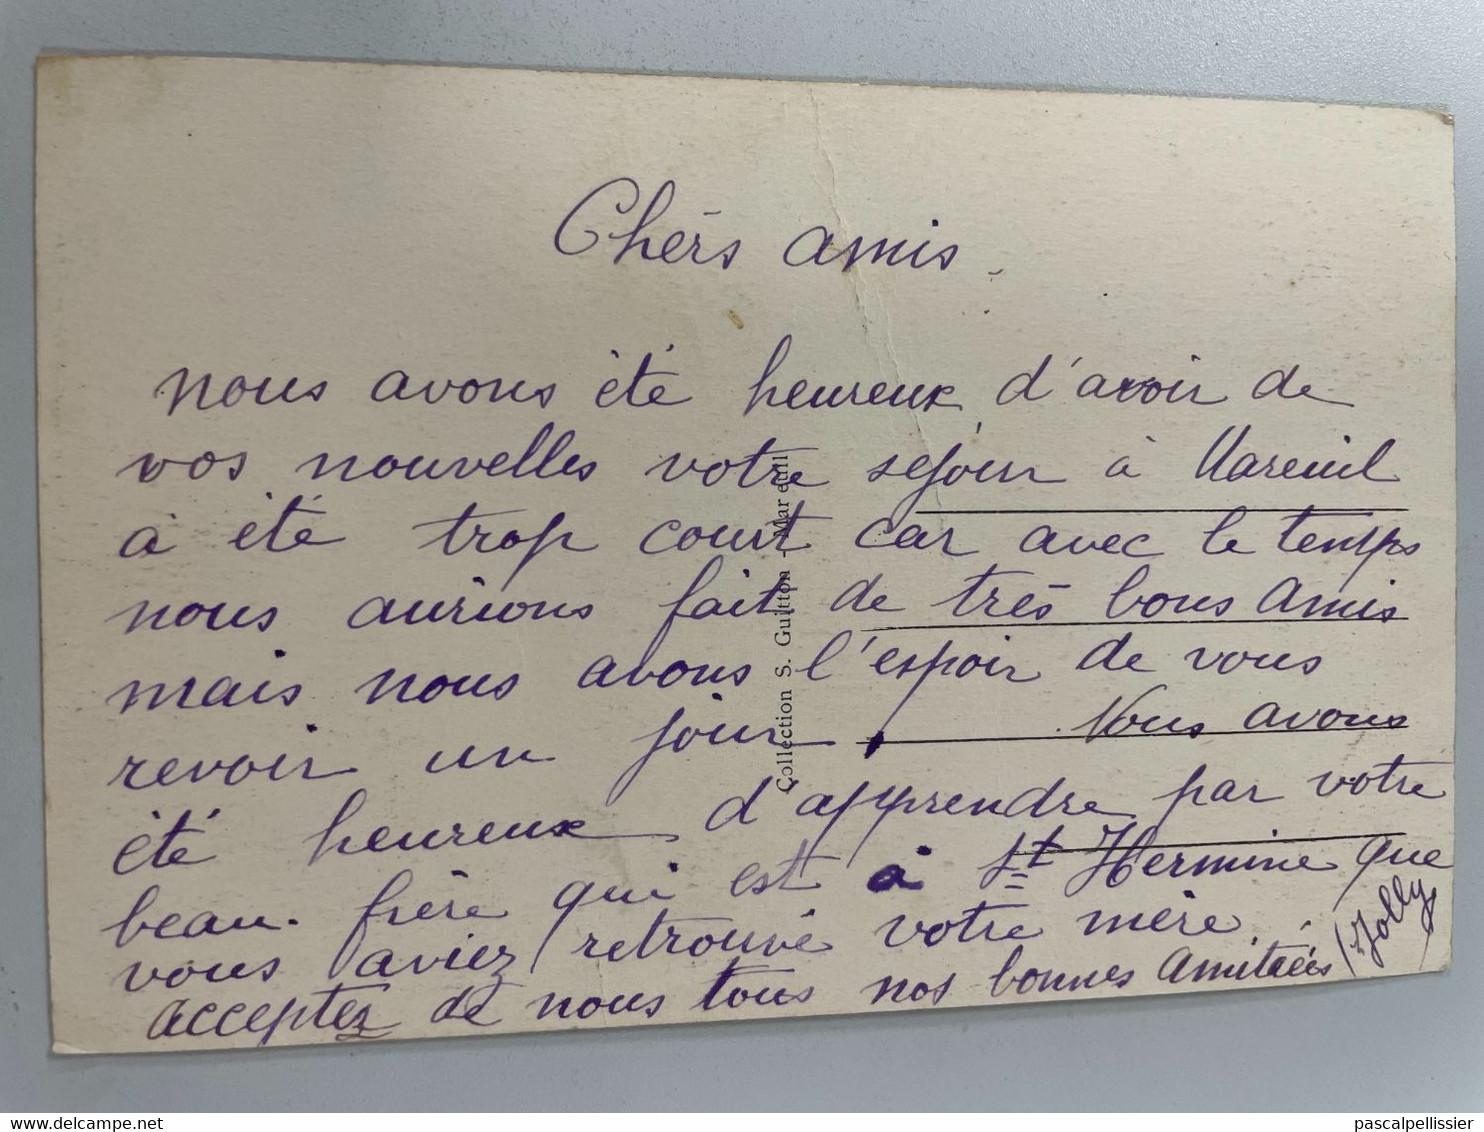 Chérs amis
nous avons été heureux d'avoir de
vos nouvelles votre sejour à Mareuil
à été trop court car avec le temps
nous aurions fait de très bons amis
mais nous avons l'espoir de vous
revoir un jour. Nous avons
été heureux d'apprendre par votre
beau-frère qui est à St Hermine que
vous aviez retrouvé votre mère.
acceptez de nous tous nos bonnes amitiées
Jolly
Collection S. Guitton - Mareuil
www.delcampe.net
pascalpellissier